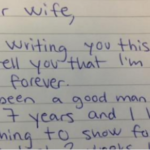 r wife,
writing you this
ell you that I'm
forever.
been a good man
7 years and I
hing to show fo